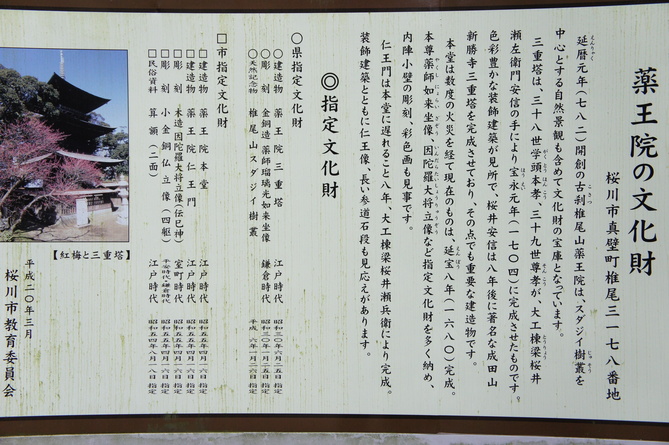 薬王院の文化財
桜川市真壁町椎尾三一七八番地
延暦元年(七八二)開創の古刹椎尾山薬王院は、スダジイ樹叢を
中心とする自然景観も含めて文化財の宝庫となっています。
三重塔は、三十八世学頭本孝、三十九世尊孝が、大工棟梁桜井
瀬左衛門安信の手により宝永元年(一七〇四)に完成させたものです。
色彩豊かな装飾建築が見所で、桜井安信は八年後に著名な成田山
新勝寺三重塔を完成させており、その点でも重要な建造物です。
本堂は数度の火災を経て現在のものは、延宝八年(一六八〇)完成。
本尊薬師如来坐像、因陀羅大将立像など指定文化財を多く納め、
内陣小壁の彫刻、彩色画も見事です。
仁王門は本堂に遅れること八年、大工棟梁桜井瀬兵衛により完成。
装飾建築とともに仁王像、長い参道石段も見応えがあります。
◎指定文化財
○県指定文化財
○建造物 薬王院三重塔 江戸時代 昭和三〇年六月二五日指定
○彫刻 金銅造 薬師瑠璃光如来坐像 鎌倉時代 昭和三〇年一月二五日指定
○天然記念物 椎尾山スダジイ樹叢 平成一六年一月二六日指定
□市指定文化財
□建造物 薬王院本堂 江戸時代 昭和五五年四月一六日指定
□建造物 薬王院仁王門 江戸時代 昭和五五年四月一六日指定
□彫刻 木造 因陀羅大将立像(伝巳神) 室町時代 昭和五五年四月一六日指定
□彫刻 小金銅仏立像(四躯) 平安時代・鎌倉時代 昭和五五年四月一六日指定
□民俗資料 算額(二面) 江戸時代 昭和五四年八月一八日指定
【紅梅と三重塔】
平成二〇年三月
桜川市教育委員会